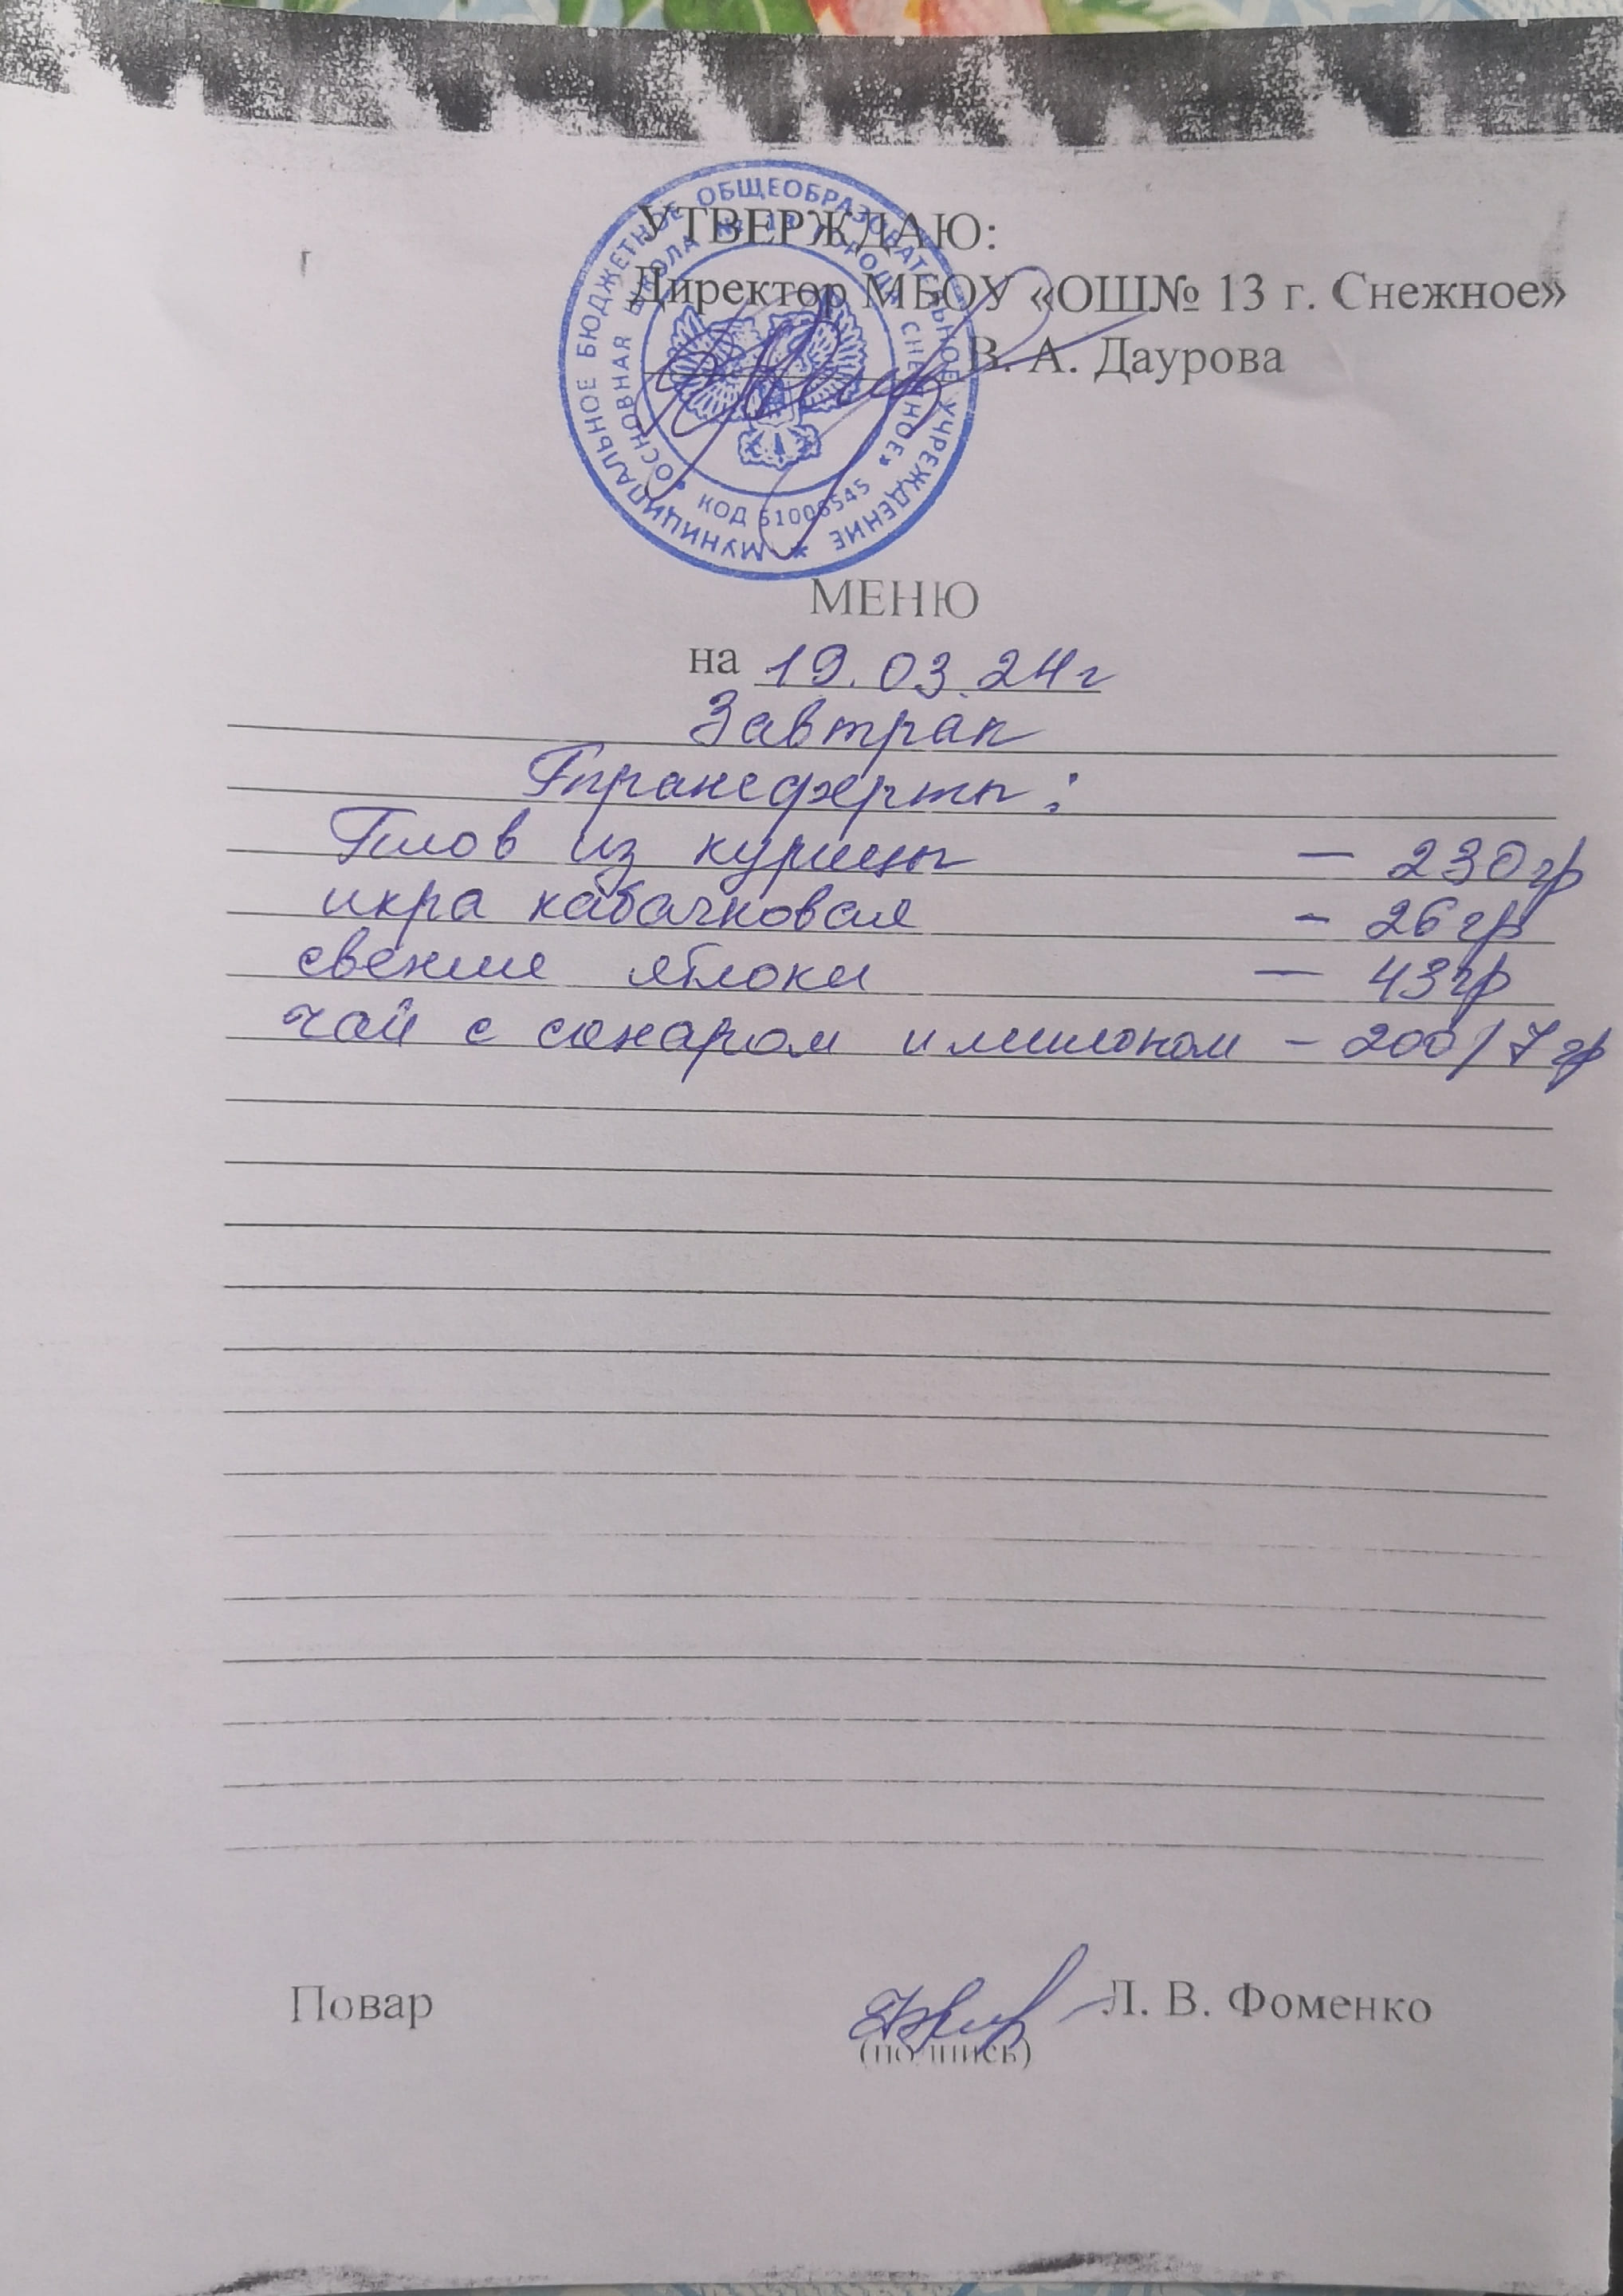 УТВЕРЖДАЮ:
Директор МБОУ «ОШ№ 13 г. Снежное»
В. А. Даурова
МУНИЦИПАЛЬНОЕ БЮДЖЕТНОЕ ОБЩЕОБРАЗОВАТЕЛЬНОЕ УЧРЕЖДЕНИЕ *
ОСНОВНАЯ ШКОЛА № 13 ГОРОДА СНЕЖНОЕ»
КОД 51006545
МЕНЮ
на 19.03.24г
Завтрак
Трансферты:
Плов из курицы — 230гр
икра кабачковая - 26гр
свежие яблоки — 43гр
чай с сахаром и лимоном - 200/7гр
Повар Л. В. Фоменко
(подпись)